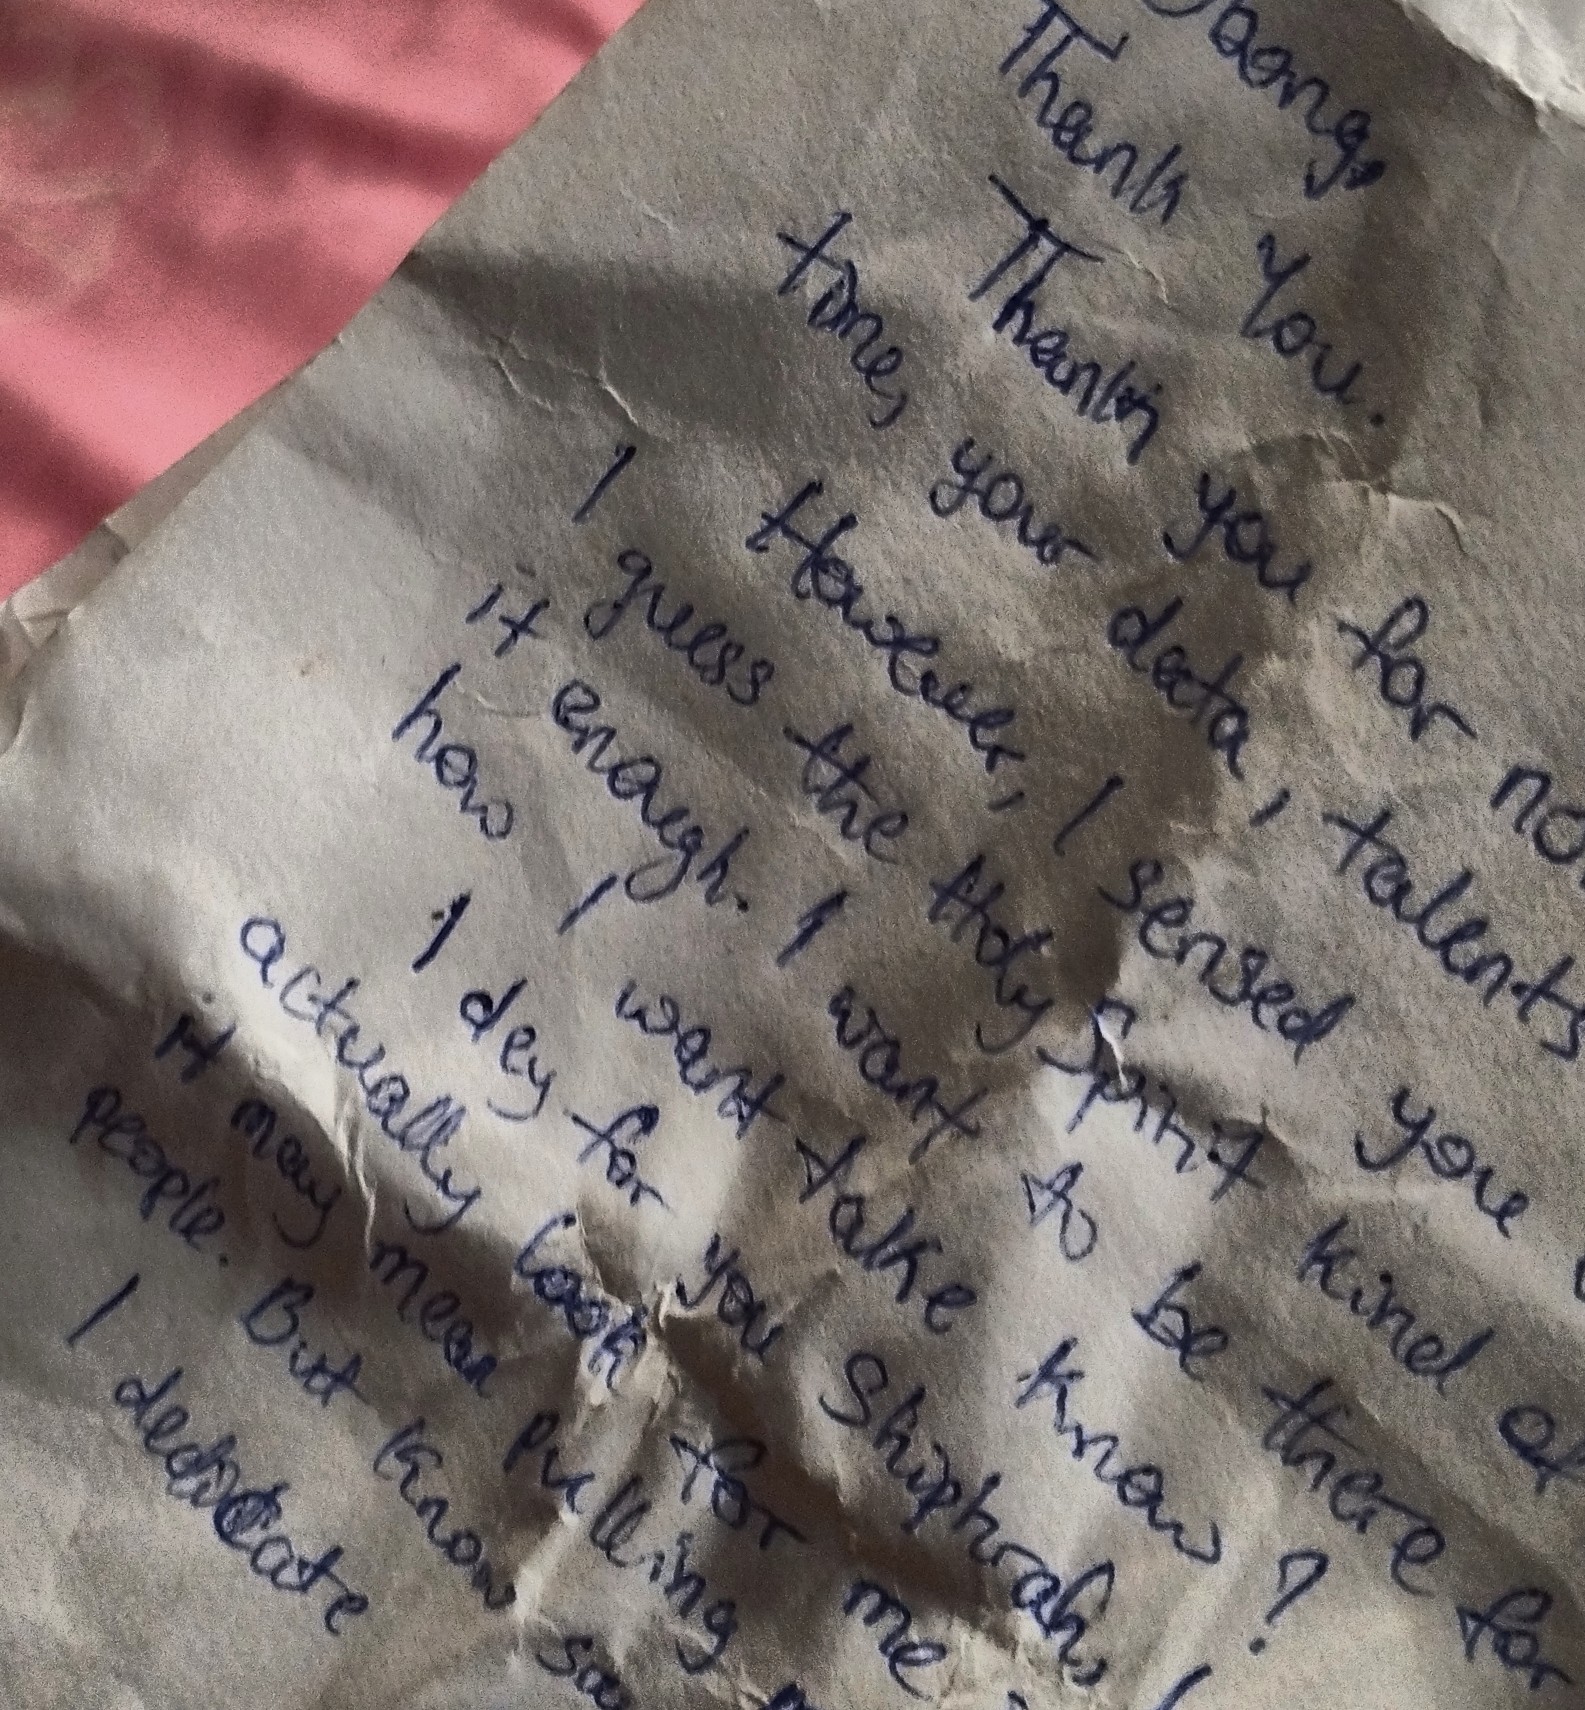 Thank You.
Thank you for
time, your data, talents
However, I sensed you
I guess the Holy Spirit kind
it enough. I want to be there for
how I want take know?
I dey for you Shiphrah, I
actually look for me
It may mean pulling
people. But know
I dedicate